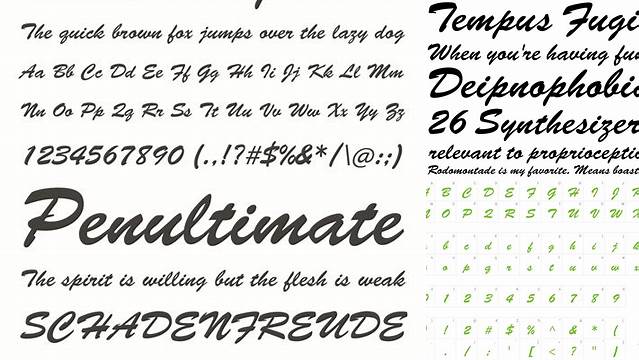 The quick brown fox jumps over the lazy dog
Aa Bb Cc Dd Ee Ff Gg Hh Ii Jj Kk Ll Mm
Nn Oo Pp Qq Rr Ss Tt Uu Vv Ww Xx Yy Zz
1234567890 (.,!?#$%&*/\@:;)
Penultimate
The spirit is willing but the flesh is weak
SCHADENFREUDE
Tempus Fugi
When you're having fu
Deipnophobi
26 Synthesizer
relevant to propriocepti
Rodomontade is my favorite. Means boast
B C D E F G H I J
O P Q R S T U V W
b c d e f g h i j
o p q r s t u v w
1 2 3 4 5 6 7 8 9
! 2 # $ % ^ & * (